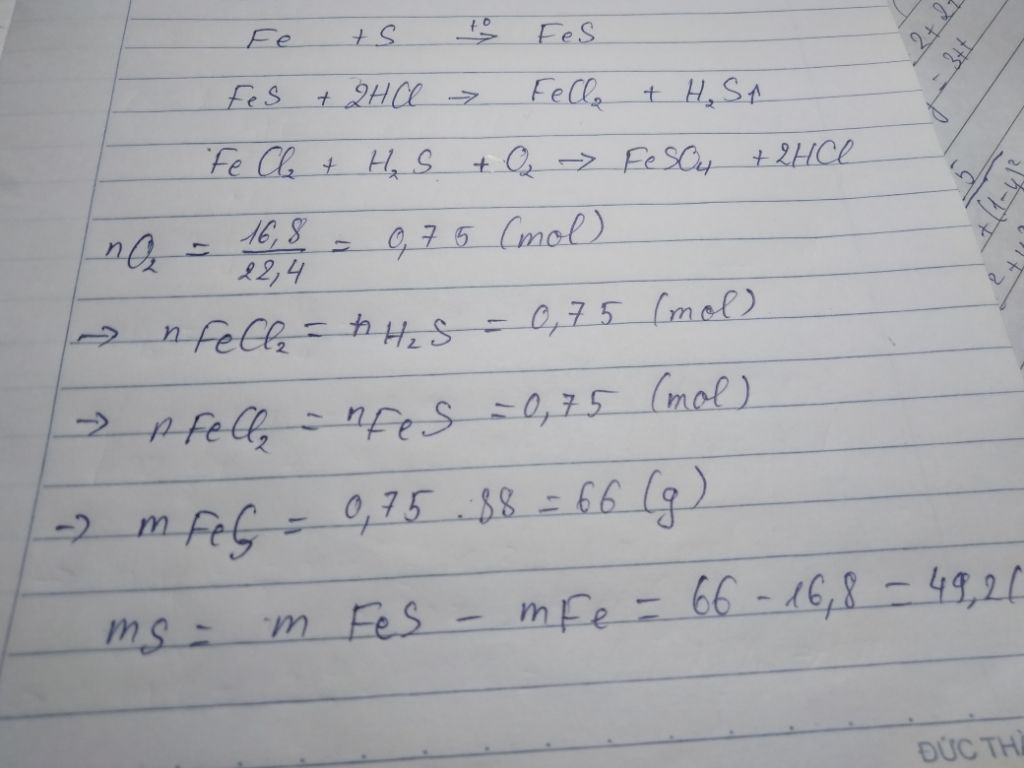 Fe + S t° → FeS
FeS + 2HCl → FeCl₂ + H₂S↑
FeCl₂ + H₂S + O₂ → FeSO₄ + 2HCl
nO₂ = 16,8 / 22,4 = 0,75 (mol)
→ nFeCl₂ = nH₂S = 0,75 (mol)
→ nFeCl₂ = nFeS = 0,75 (mol)
→ mFeS = 0,75 . 88 = 66 (g)
mS = m FeS - mFe = 66 - 16,8 = 49,2(
ĐỨC THÀ